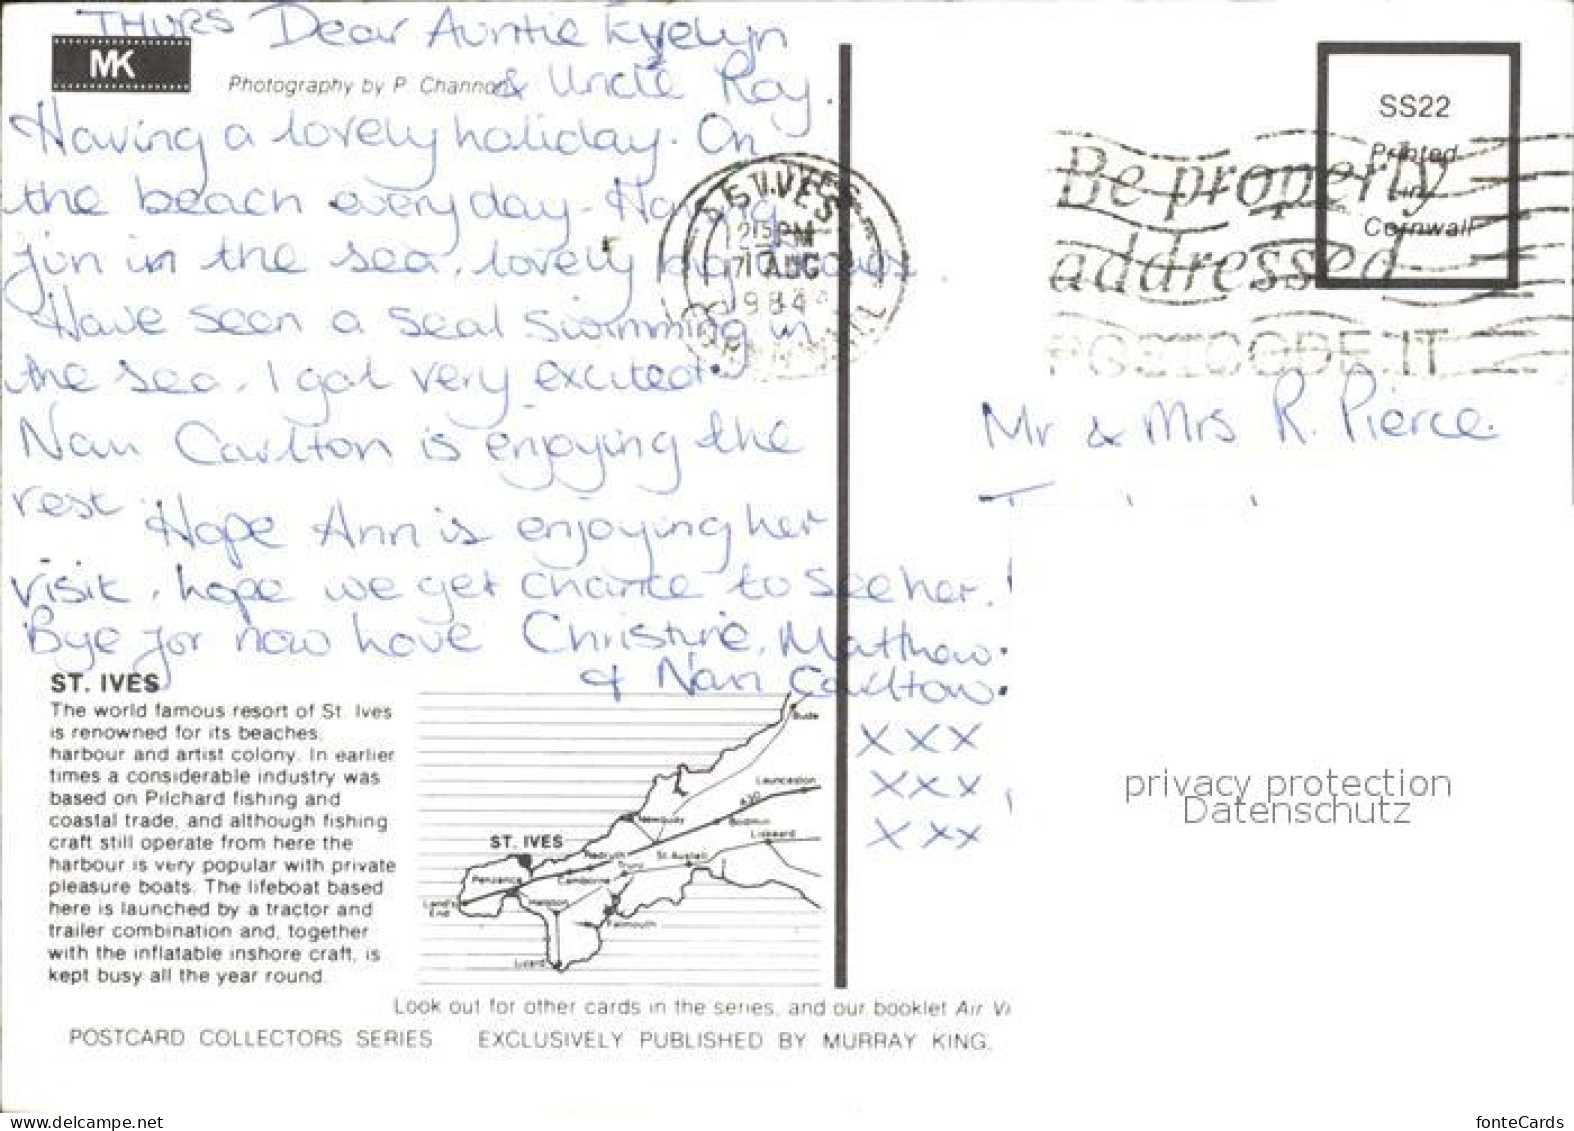 THURS Dear Auntie Evelyn
& Uncle Ray.
MK
Photography by P. Channon
Having a lovely holiday. On
the beach everyday - Having
fun in the sea, lovely big waves.
Have seen a seal swimming in
the sea. I got very excited.
Nan Carlton is enjoying the
rest. Hope Ann is enjoying her
visit, hope we get chance to see her.
Bye for now love Christine, Matthew.
& Nan Carlton.
XXX
XXX
XXX
ST. IVES
The world famous resort of St. Ives
is renowned for its beaches,
harbour and artist colony. In earlier
times a considerable industry was
based on Pilchard fishing and
coastal trade, and although fishing
craft still operate from here the
harbour is very popular with private
pleasure boats. The lifeboat based
here is launched by a tractor and
trailer combination and, together
with the inflatable inshore craft, is
kept busy all the year round.
Bude
Launceston
A30
Bodmin
Liskeard
Newquay
ST. IVES
Redruth
St. Austell
Truro
Penzance
Camborne
Land's
End
Helston
Falmouth
Lizard
Look out for other cards in the series, and our booklet Air Vi
POSTCARD COLLECTORS SERIES EXCLUSIVELY PUBLISHED BY MURRAY KING,
ST. IVES
12 15 PM
AUG
1984
CORNWALL
Be properly
addressed
POSTCODE IT
SS22
Printed
in
Cornwall
Mr & Mrs R. Pierce.
privacy protection
Datenschutz
www.delcampe.net
fonteCards